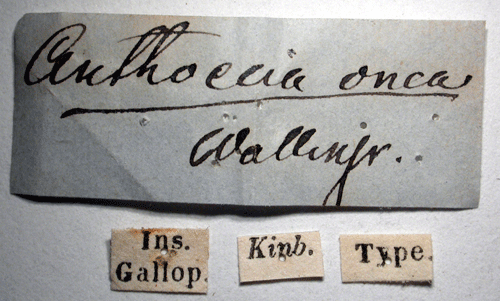 Anthoecia onca
Wallengr.
Ins.
Gallop.
Kinb.
Type.